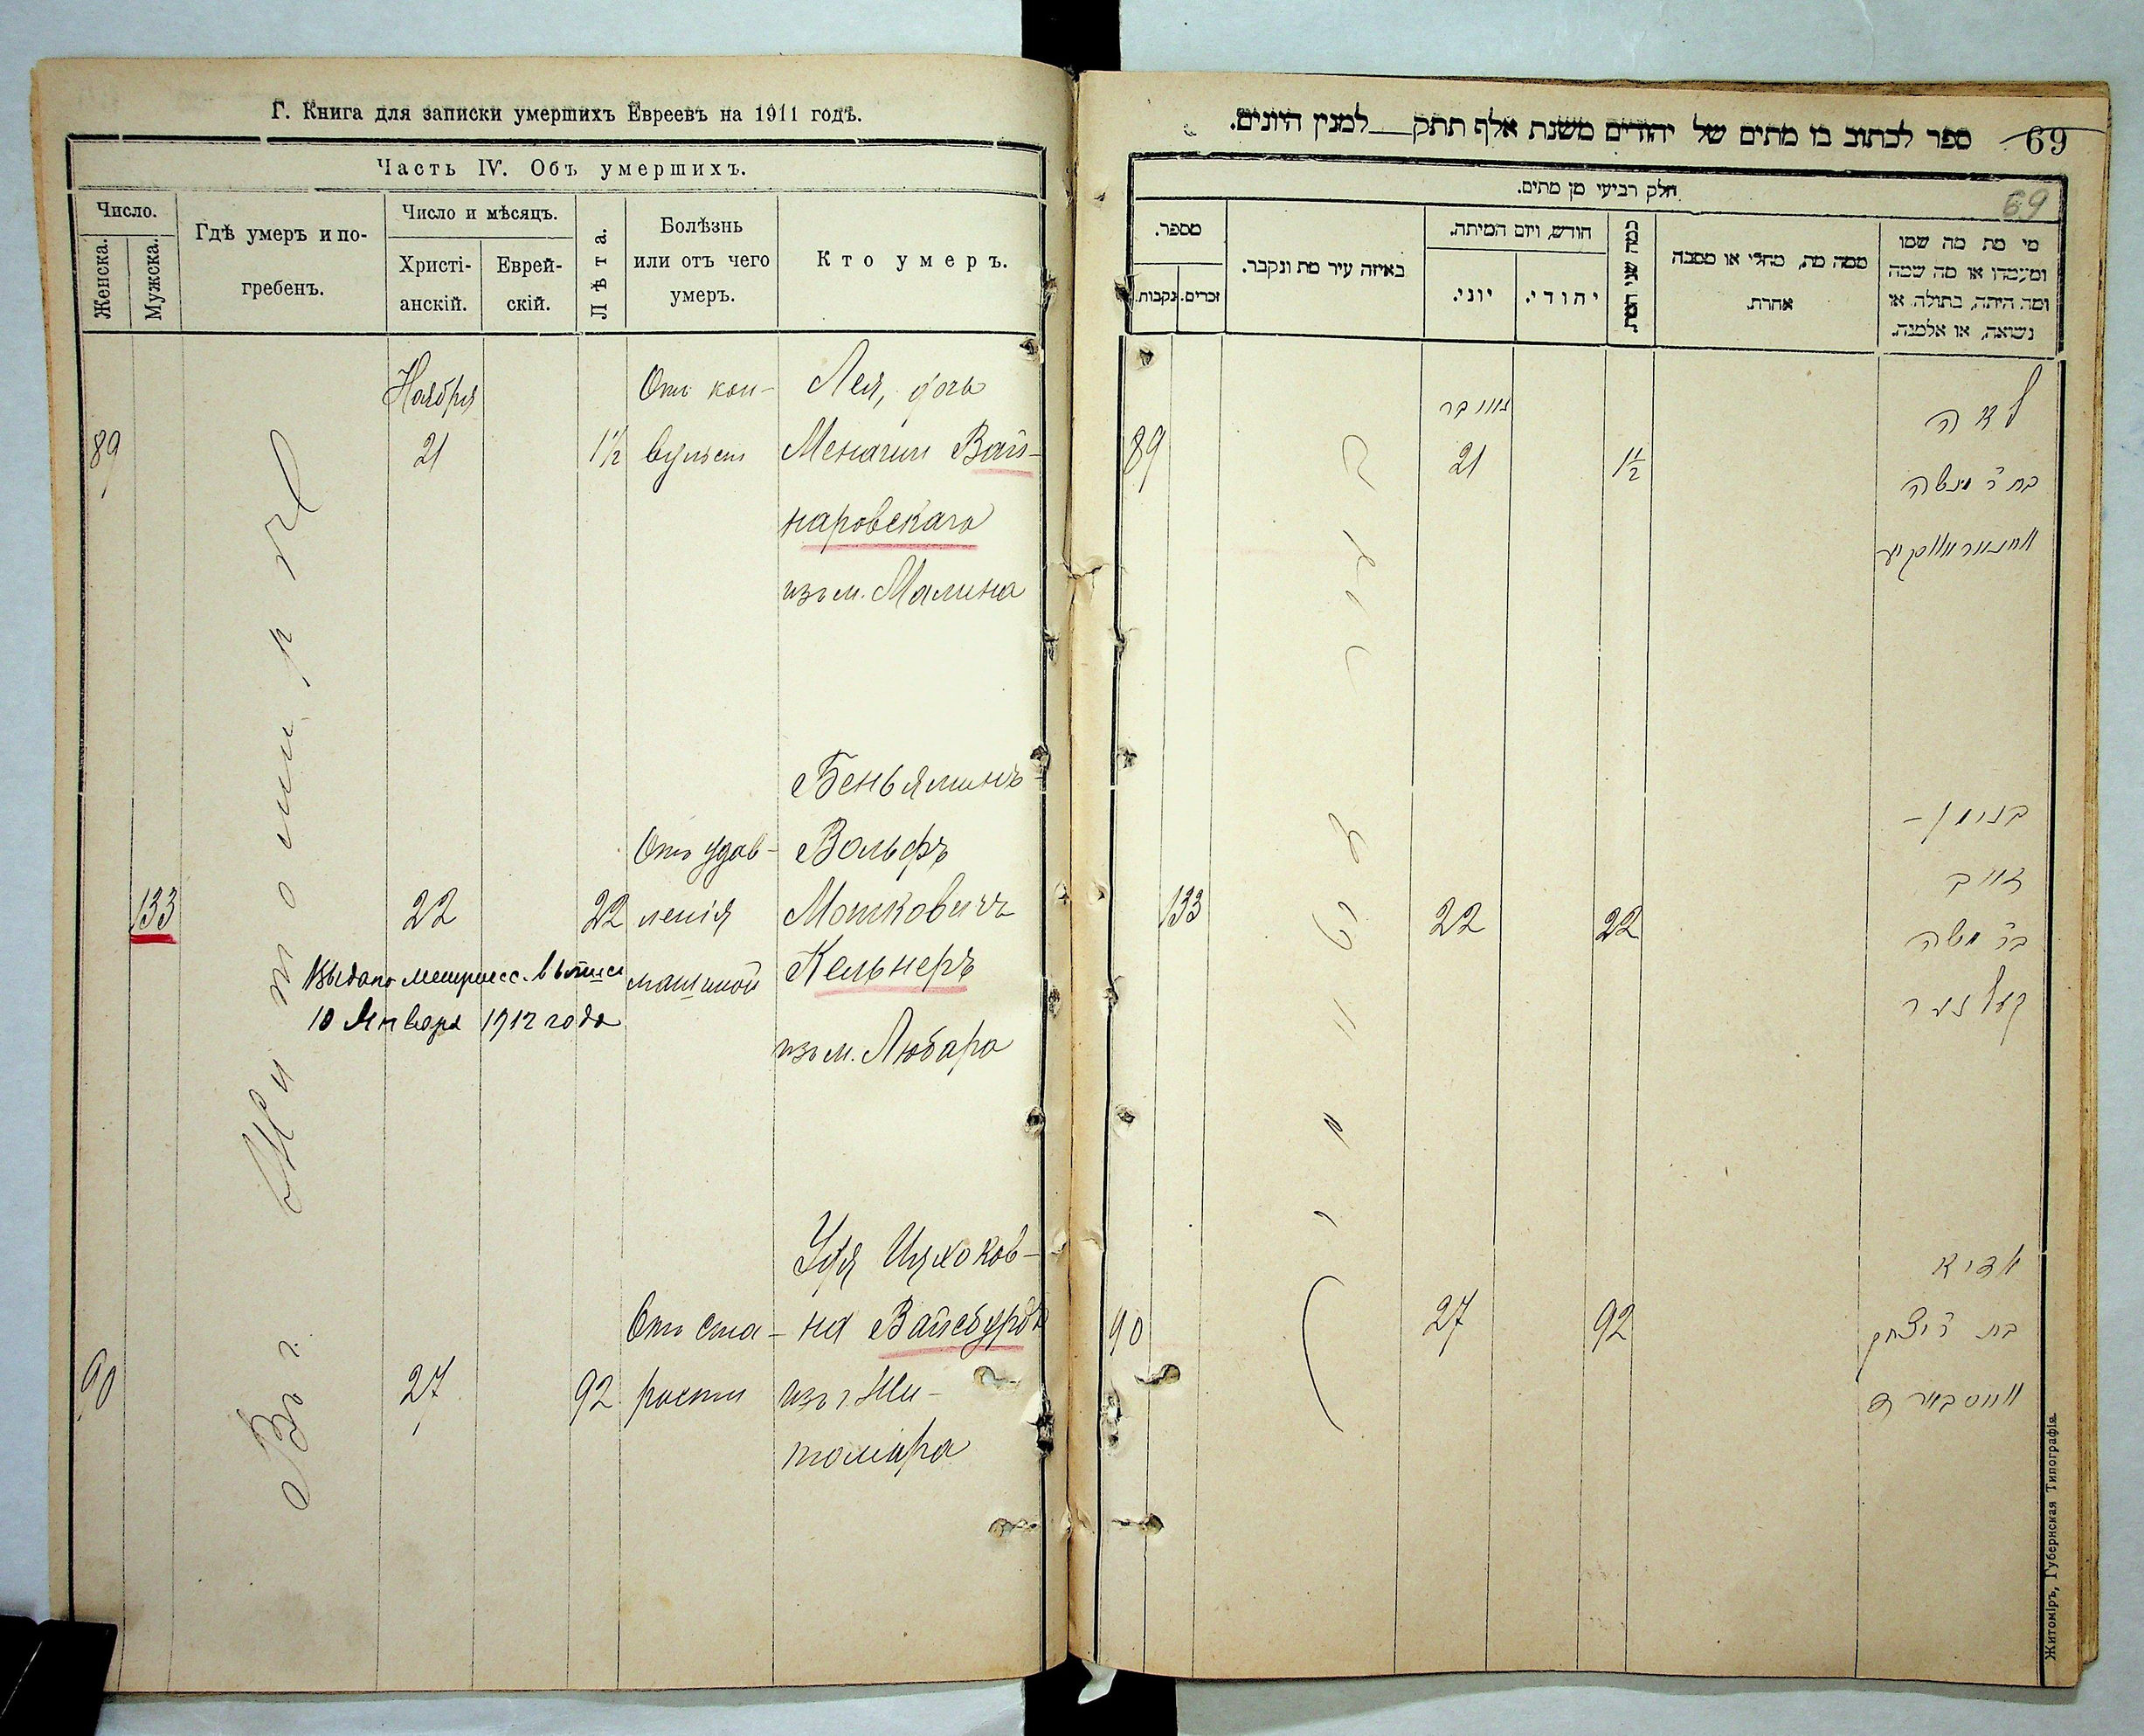 Г. Книга для записки умершихъ Евреевъ на 1911 годъ.
Часть IV. Объ умершихъ.
Число.
Женска.
Мужска.
Гдѣ умеръ и по-
гребенъ.
Число и мѣсяцъ.
Христі-
анскій.
Еврей-
скій.
Лѣта.
Болѣзнь
или отъ чего
умеръ.
Кто умеръ.
Въ г. Житомирѣ
Ноября
89
21
1½
Отъ кон-
вульсіи
Лея, дочь
Менаши Вай-
наровскаго
изъ м. Малина
133
22
22
Отъ удав-
ленія
машиной
Беньяминъ
Вольфъ
Мошковичъ
Кельнеръ
изъ м. Любара
Выдано метрическ. выпись
10 Января 1912 года
90
27
92
Отъ ста-
рости
Удя Ицхоков-
на Вайсбурдъ
изъ г. Жи-
томира
69
ספר לכתוב בו מתים של יהודים משנת אלף תתק למנין היונים.
חלק רביעי מן מתים.
69
מספר.
נקבות.
זכרים.
באיזה עיר מת ונקבר.
חודש, ויום המיתה.
יוני.
יהודי.
כמה שני המת.
ממה מת, מחלי או מסבה
אחרת.
מי מת מה שמו
ומעמדו או מה שמה
ומה היתה, בתולה או
נשואה, או אלמנה.
נאוובר
89
21
1½
לאה
בת ר' מנשה
133
22
22
בנימן-
וואלף
בר' משה
קעלנער
90
27
92
אדיא
בת ר' יצחק
ווייסבורד
Житоміръ, Губернская Типографія.